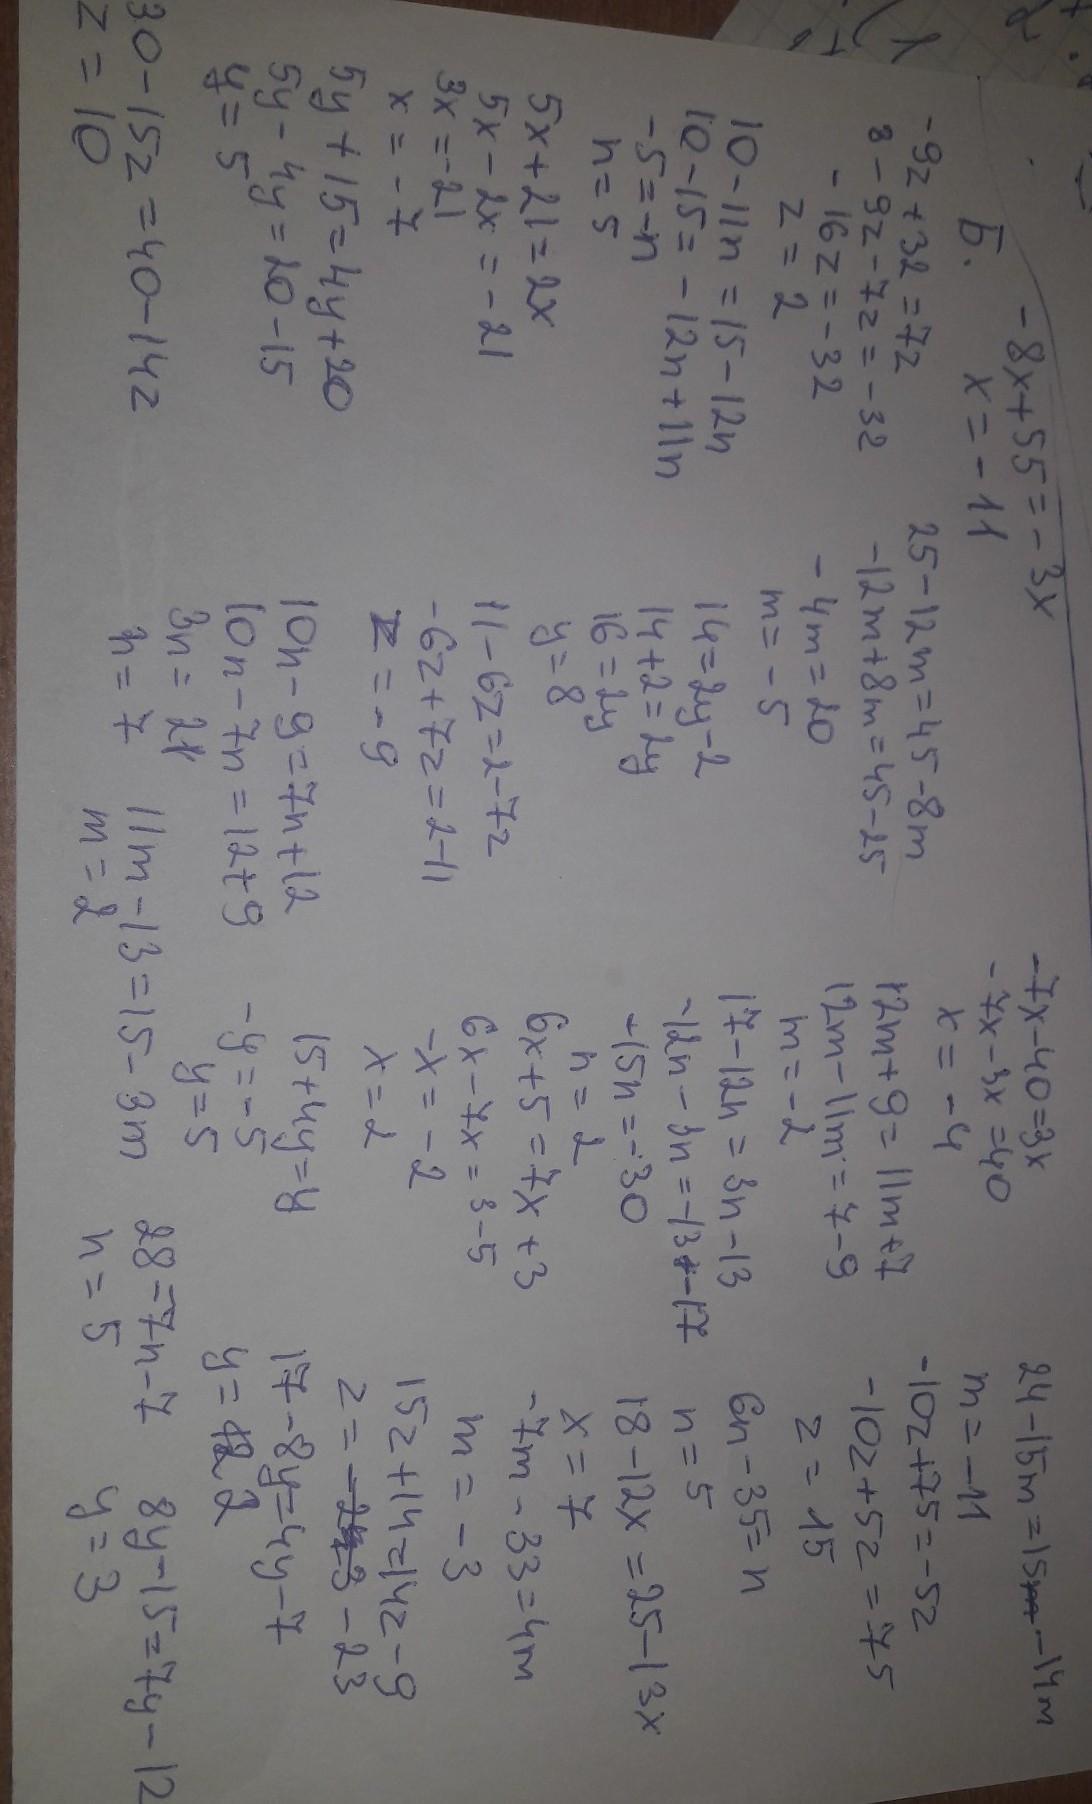 Б. -8x+55=-3x
x=-11
-9z+32=7z
-9z-7z=-32
-16z=-32
z=2
10-11n=15-12n
10-15=-12n+11n
-5=-n
n=5
5x+21=2x
5x-2x=-21
3x=-21
x=-7
5y+15=4y+20
5y-4y=20-15
y=5
30-15z=40-14z
z=10
25-12m=45-8m
-12m+8m=45-25
-4m=20
m=-5
14=2y-2
14+2=2y
16=2y
y=8
11-6z=2-7z
-6z+7z=2-11
z=-9
10n-9=7n+12
10n-7n=12+9
3n=21
n=7
11m-13=15-3m
m=2
-7x-40=3x
-7x-3x=40
x=-4
12m+9=11m+7
12m-11m=7-9
m=-2
17-12n=3n-13
-12n-3n=-13-17
-15n=-30
n=2
6x+5=7x+3
6x-7x=3-5
-x=-2
x=2
15+4y=y
-y=-5
y=5
28=7n-7
n=5
24-15m=15-14m
m=-11
-10z+75=-5z
-10z+5z=75
z=15
6n-35=n
n=5
18-12x=25-13x
x=7
-7m-33=4m
m=-3
15z+14=14z-9
z=-23
17-8y=4y-7
y=2
8y-15=7y-12
y=3